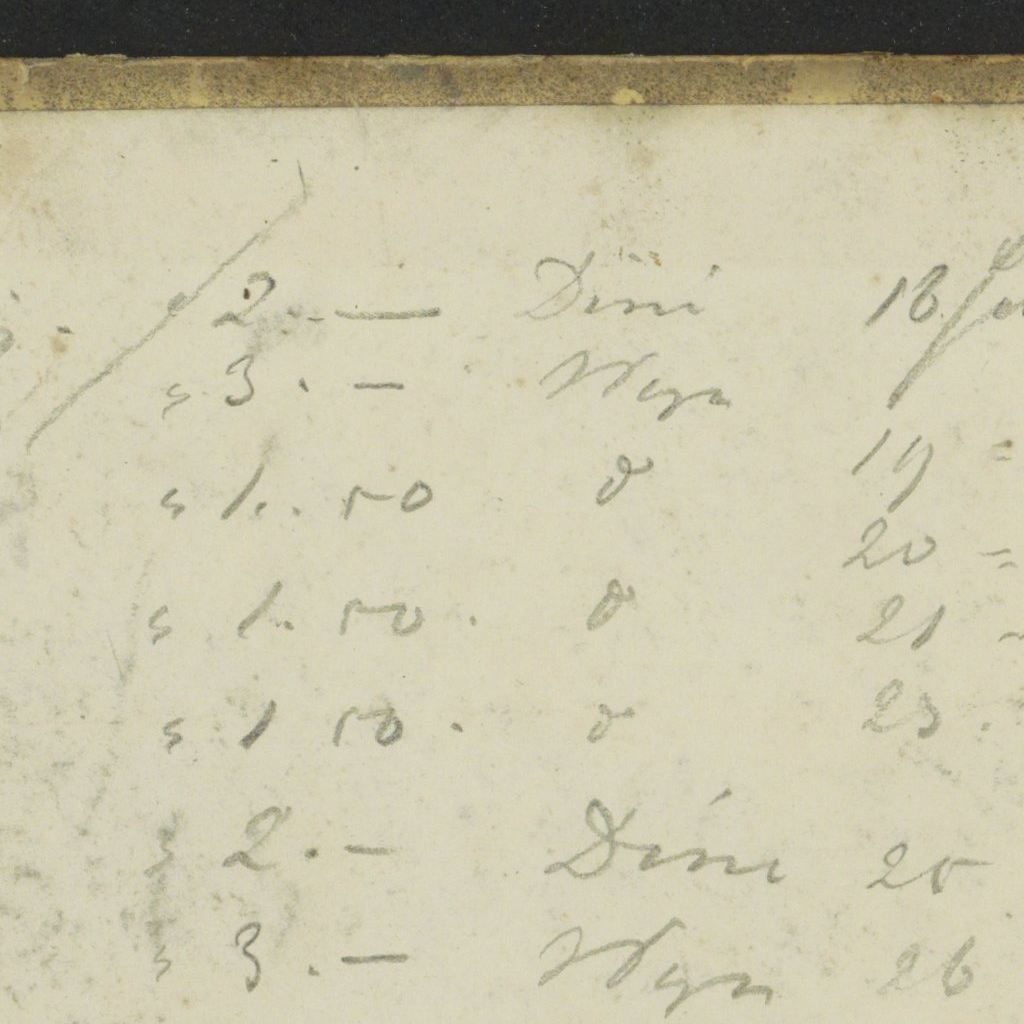 2.- Dini 18
" 3.- Wyn
" 1.50 d 19 =
20 =
" 1.50. d 21 -
" 1 50. d 23.
" 2.- Dini 25
" 3.- Wyn 26